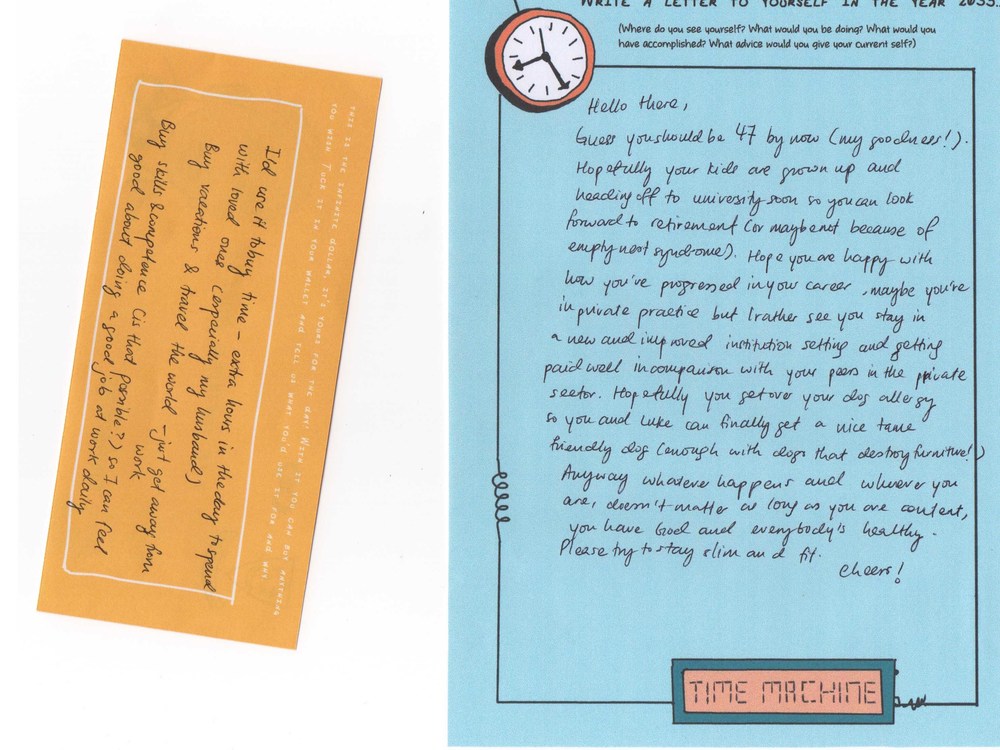 THIS IS THE INFINITE DOLLAR. IT'S YOURS FOR THE DAY! WITH IT YOU CAN BUY ANYTHING
YOU WISH. TUCK IT IN YOUR WALLET AND TELL US WHAT YOU'D USE IT FOR AND WHY.
I'd use it to buy time – extra hours in the day to spend
with loved ones (especially my husband)
Buy vacations & travel the world – just get away from
work
Buy skills & competence (is that possible?) so I can feel
good about doing a good job at work daily
WRITE A LETTER TO YOURSELF IN THE YEAR 2035.
(Where do you see yourself? What would you be doing? What would you
have accomplished? What advice would you give your current self?)
Hello there,
Guess you should be 47 by now (my goodness!).
Hopefully your kids are grown up and
heading off to university soon so you can look
forward to retirement (or maybe not because of
empty nest syndrome). Hope you are happy with
how you've progressed in your career, maybe you're
in private practice but I rather see you stay in
a new and improved institution setting and getting
paid well in comparison with your peers in the private
sector. Hopefully you get over your dog allergy
so you and Luke can finally get a nice tame
friendly dog (enough with dogs that destroy furniture!)
Anyway whatever happens and wherever you
are, doesn't matter as long as you are content,
you have God and everybody's healthy.
Please try to stay slim and fit.
Cheers!
TIME MACHINE